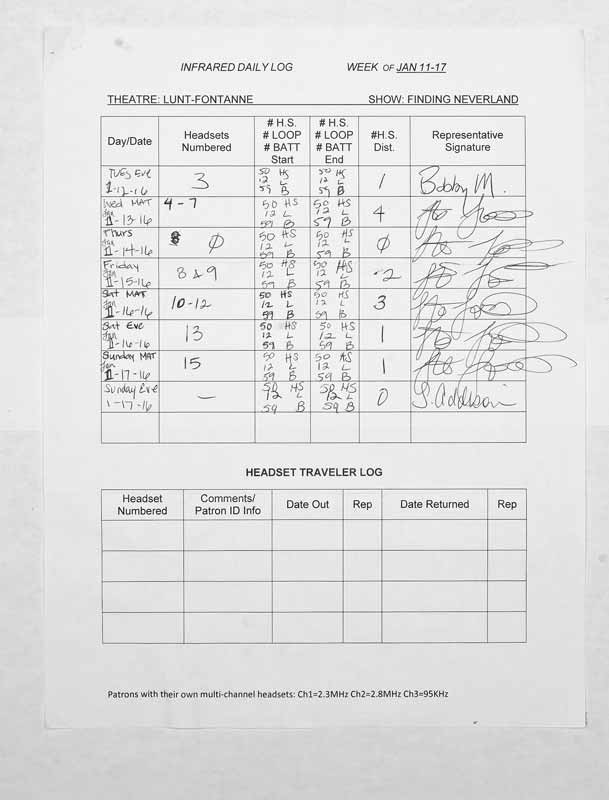 INFRARED DAILY LOG WEEK OF JAN 11-17
THEATRE: LUNT-FONTANNE SHOW: FINDING NEVERLAND
Day/Date Headsets Numbered # H.S. # LOOP # BATT Start # H.S. # LOOP # BATT End #H.S. Dist. Representative Signature
Tues Eve 1-12-16 3 50 HS 12 L 59 B 50 HS 12 L 59 B 1 Bobby M.
Wed MAT Jan 1-13-16 4-7 50 HS 12 L 59 B 50 HS 12 L 59 B 4
Thurs Jan 1-14-16 0 50 HS 12 L 59 B 50 HS 12 L 59 B 0
Friday Jan 1-15-16 8 & 9 50 HS 12 L 59 B 50 HS 12 L 59 B 2
Sat MAT Jan 1-16-16 10-12 50 HS 12 L 59 B 50 HS 12 L 59 B 3
Sat Eve Jan 1-16-16 13 50 HS 12 L 59 B 50 HS 12 L 59 B 1
Sunday MAT Jan 1-17-16 15 50 HS 12 L 59 B 50 HS 12 L 59 B 1
Sunday Eve 1-17-16 — 50 HS 12 L 59 B 50 HS 12 L 59 B 0 S. Addison
HEADSET TRAVELER LOG
Headset Numbered Comments/ Patron ID Info Date Out Rep Date Returned Rep
Patrons with their own multi-channel headsets: Ch1=2.3MHz Ch2=2.8MHz Ch3=95KHz